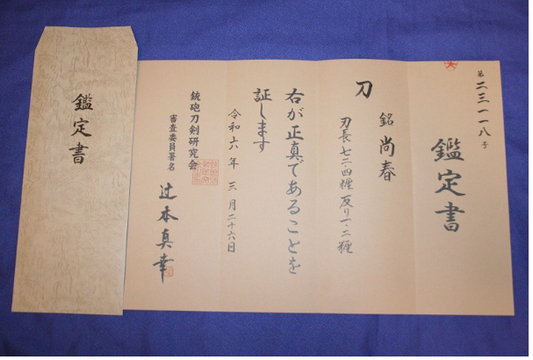 鑑定書
第二三一一八号
鑑定書
刀 銘 尚春
刃長七二・四糎 反り一・二糎
右が正真であることを
証します
令和六年 三月二十六日
銃砲刀剣研究会
審査委員署名 辻本真幸